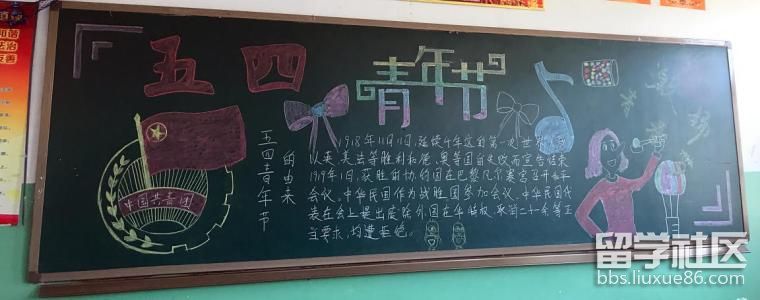 和谐
法治
友善
五四
青年节
五四青年节
的由来
1918年11月11日,延续4年之久的第一次世界
以英、美、法等胜利和德、奥等国的失败而宣告结束
1919年1月,获胜的协约国在巴黎凡尔赛宫召开和平
会议。中华民国作为战胜国参加会议。中华民国代
表在会上提出废除外国在华特权,取消二十一条等正
当要求,均遭拒绝。
中国共青团
努
留学社区
bbs.liuxue86.com